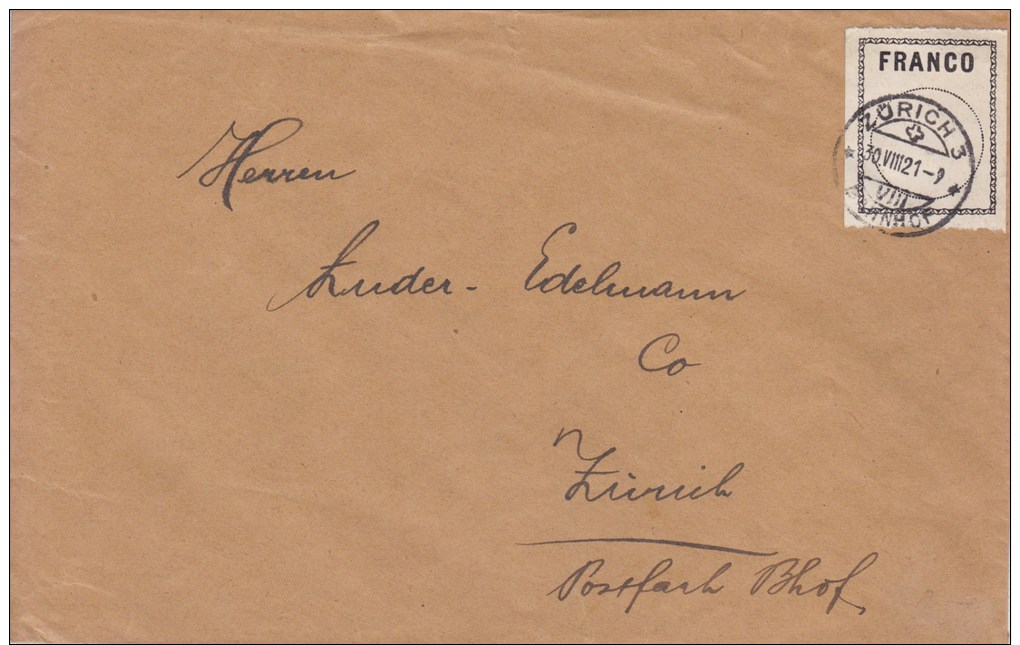 FRANCO
ZÜRICH 3
30 VIII 21-9
VIII
BAHNHOF
Herren
Edelmann
Co
Zürich
Postfach Bhof,